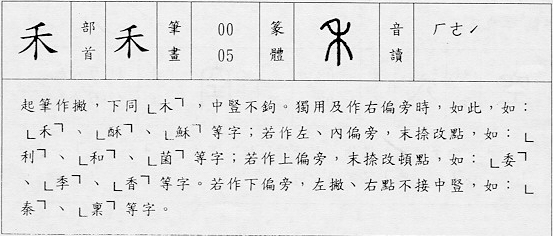 禾 部首 禾 筆畫 00 05 篆體 音讀 ㄏㄜˊ
起筆作撇，下同「木」，中豎不鉤。獨用及作右偏旁時，如此，如：
「禾」、「酥」、「穌」等字；若作左、內偏旁，末捺改點，如：「
利」、「和」、「菌」等字；若作上偏旁，末捺改頓點，如：「委」
、「季」、「香」等字。若作下偏旁，左撇、右點不接中豎，如：「
泰」、「稟」等字。